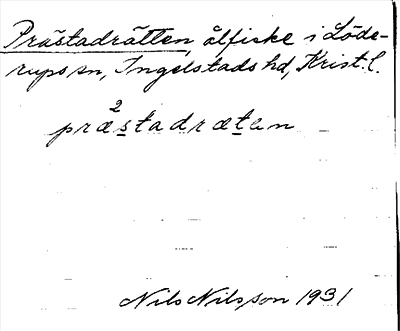 Prästadrätten, ålfiske i Löde-
rups sn, Ingelstads hd, Krist. l.
2
præstadrætan
Nils Nilsson 1931